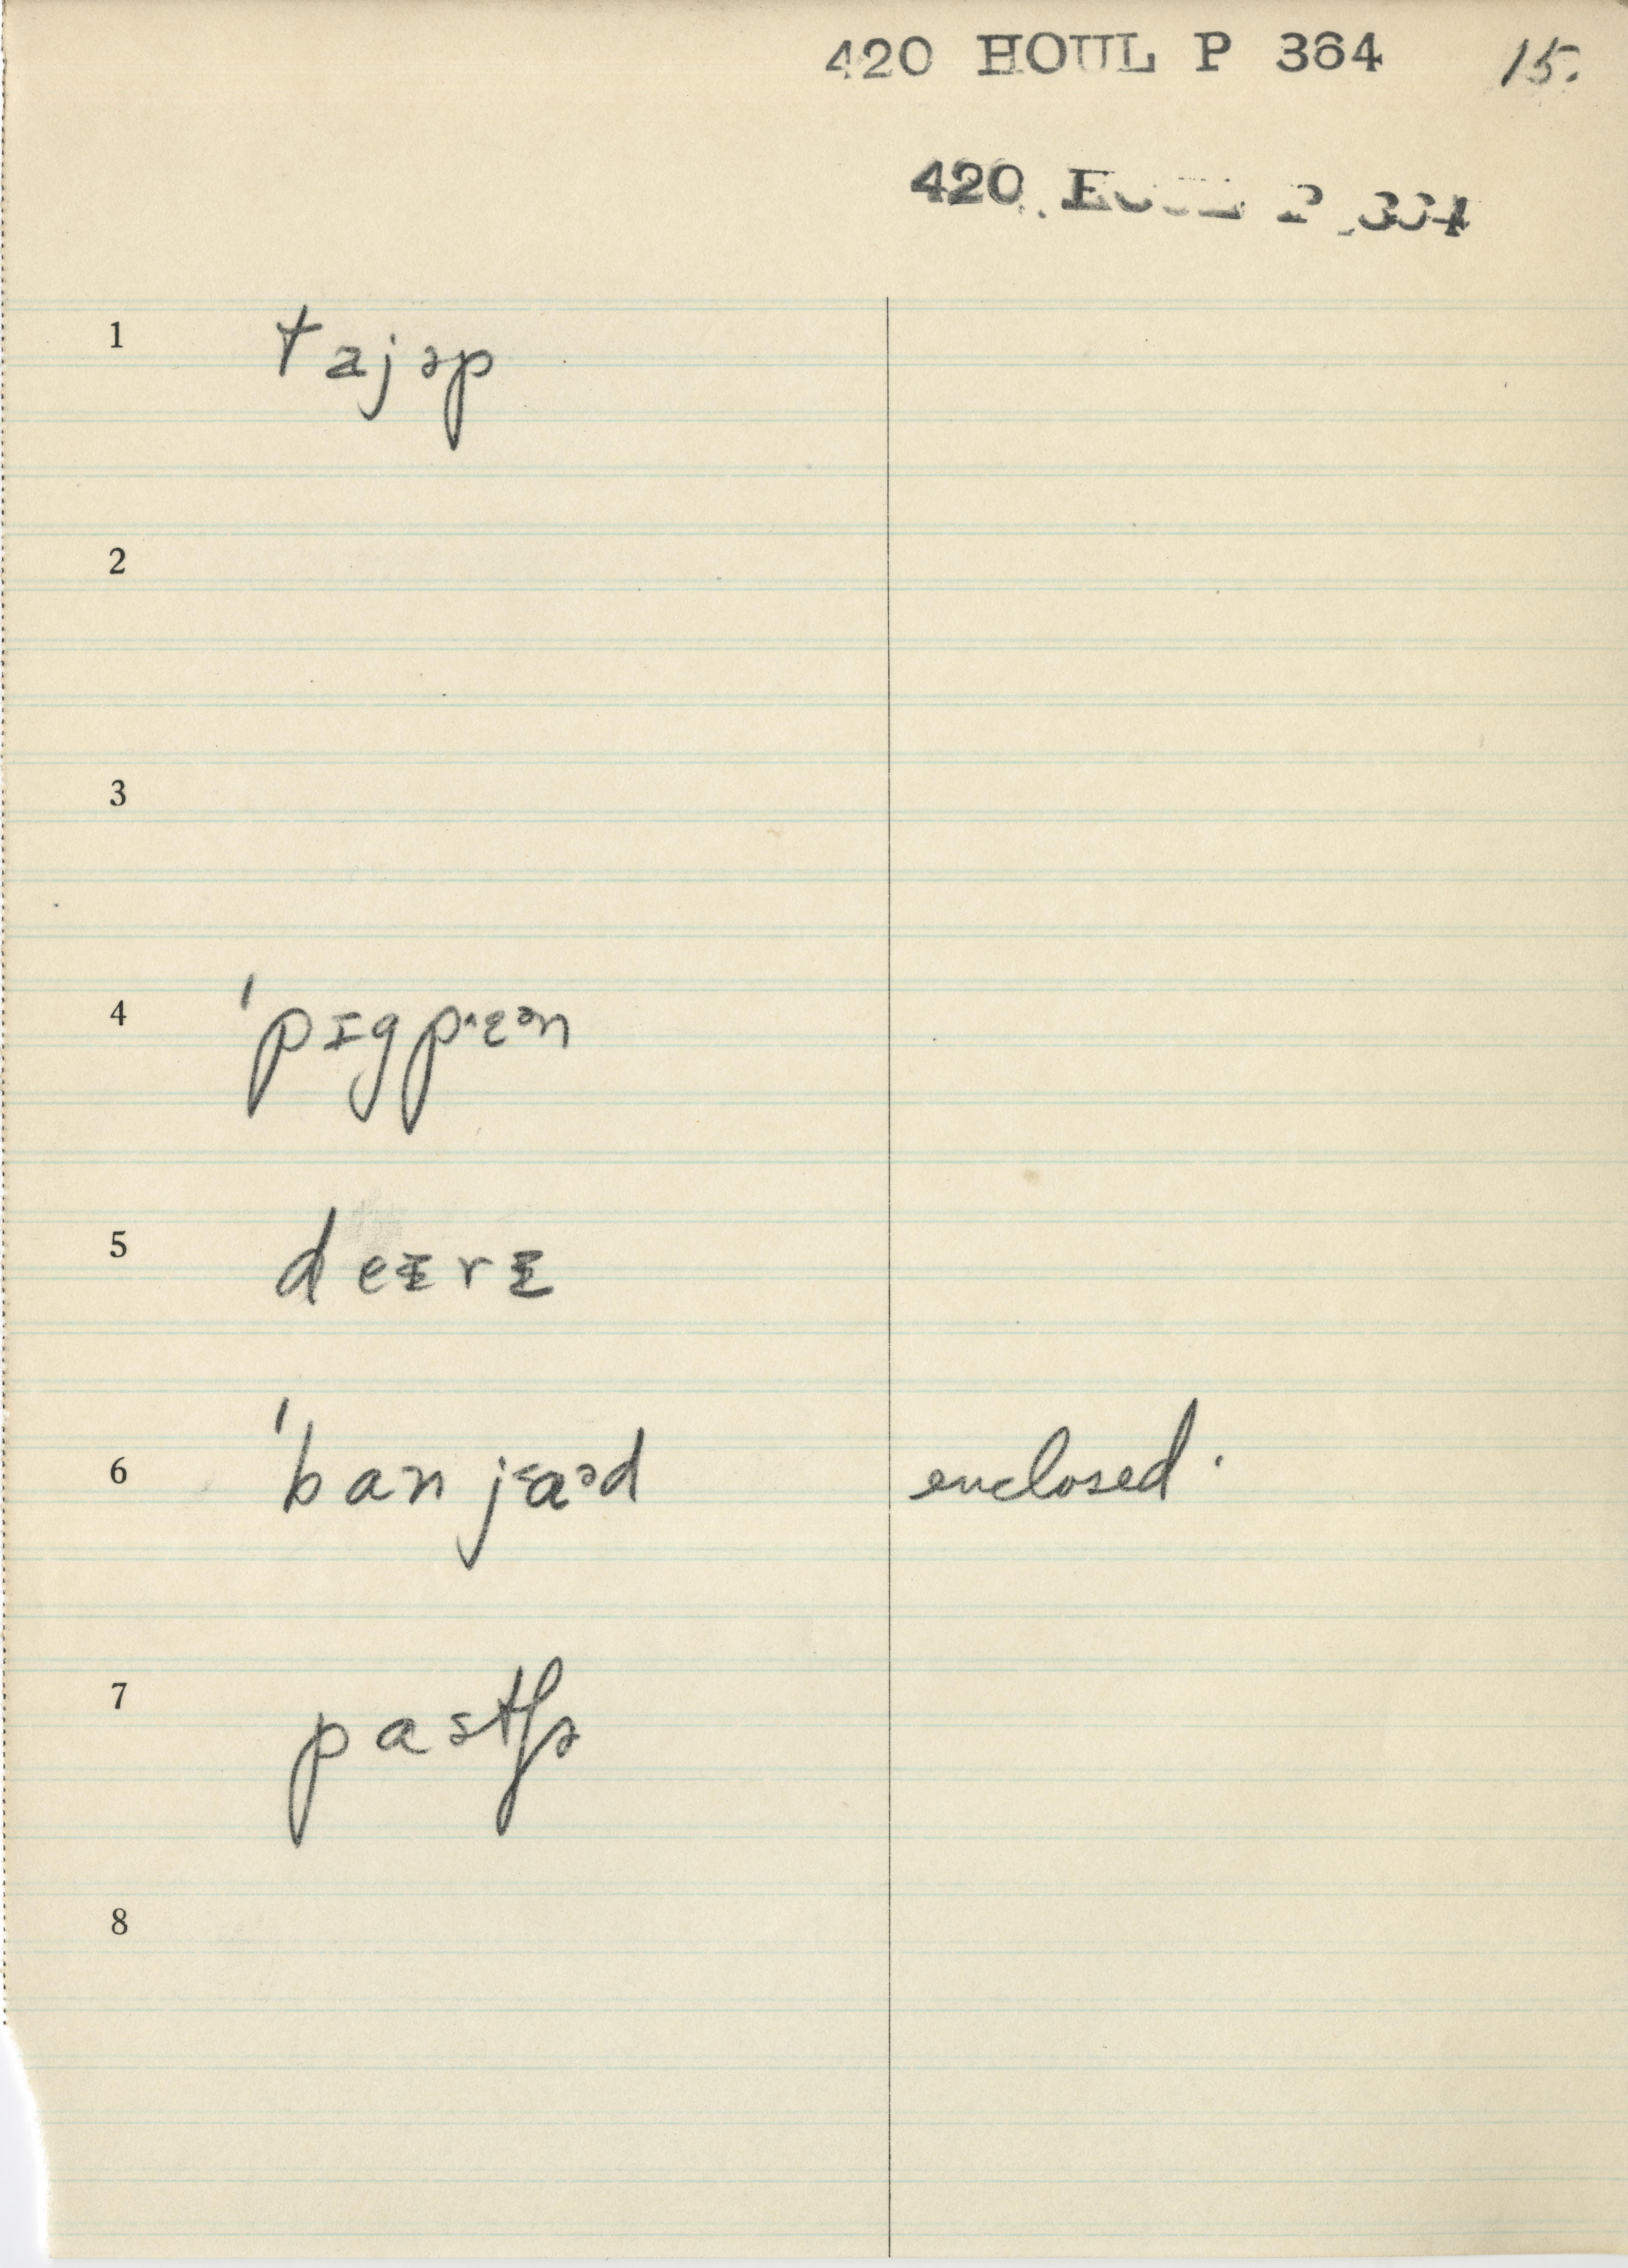 420 HOUL P 364 15.
420
1 tajəp
2
3
4 ˈpɪgpᶦɛᵊn
5 deɪrɪ
6 ˈbanjᵋaᵊd enclosed.
7 pastʃə
8